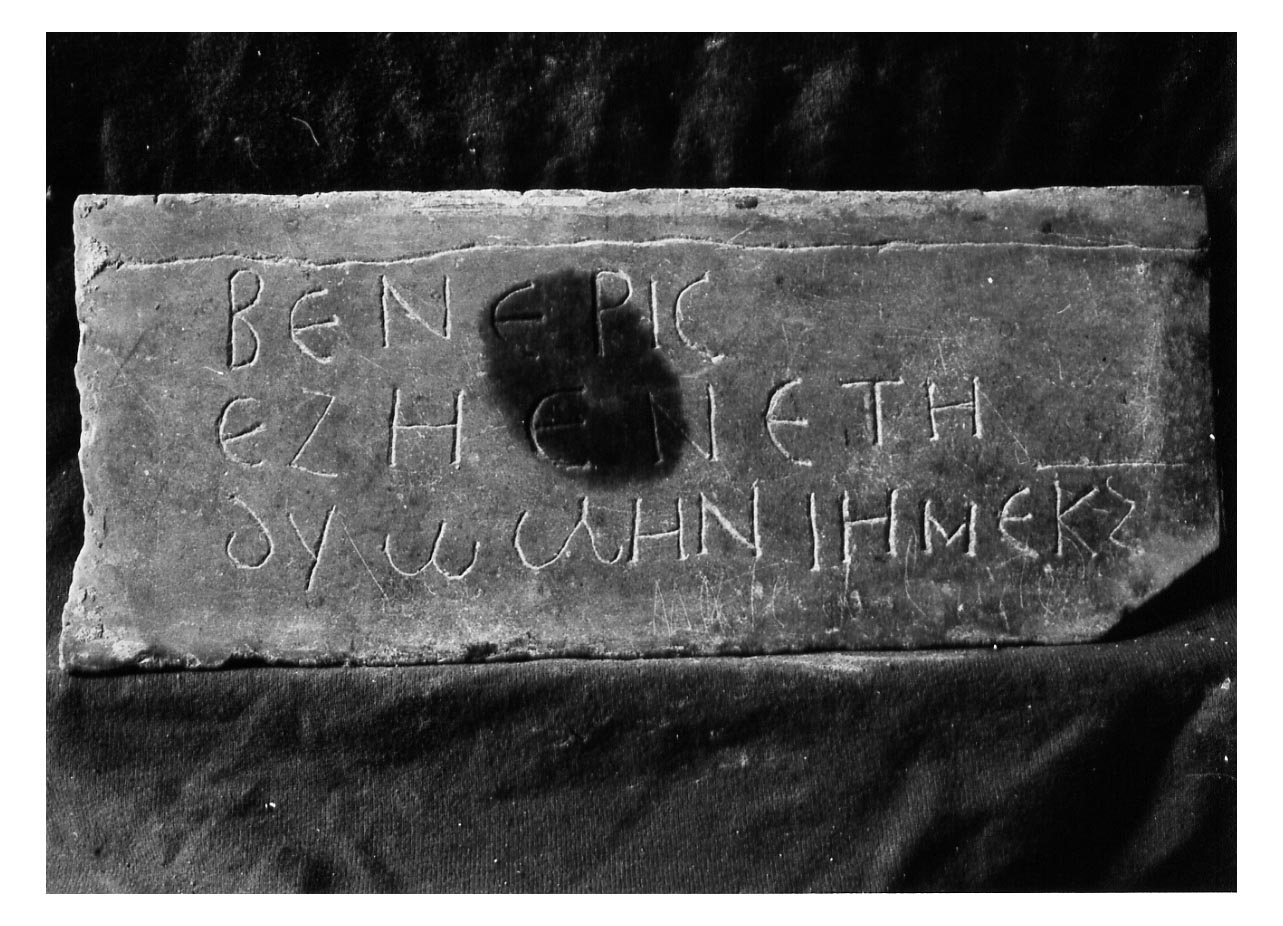 ΒΕΝΕΡΙϹ
ΕΖΗΕΝΕΤΗ
ΔΥωΜΗΝΙΗΜΕΚϛ